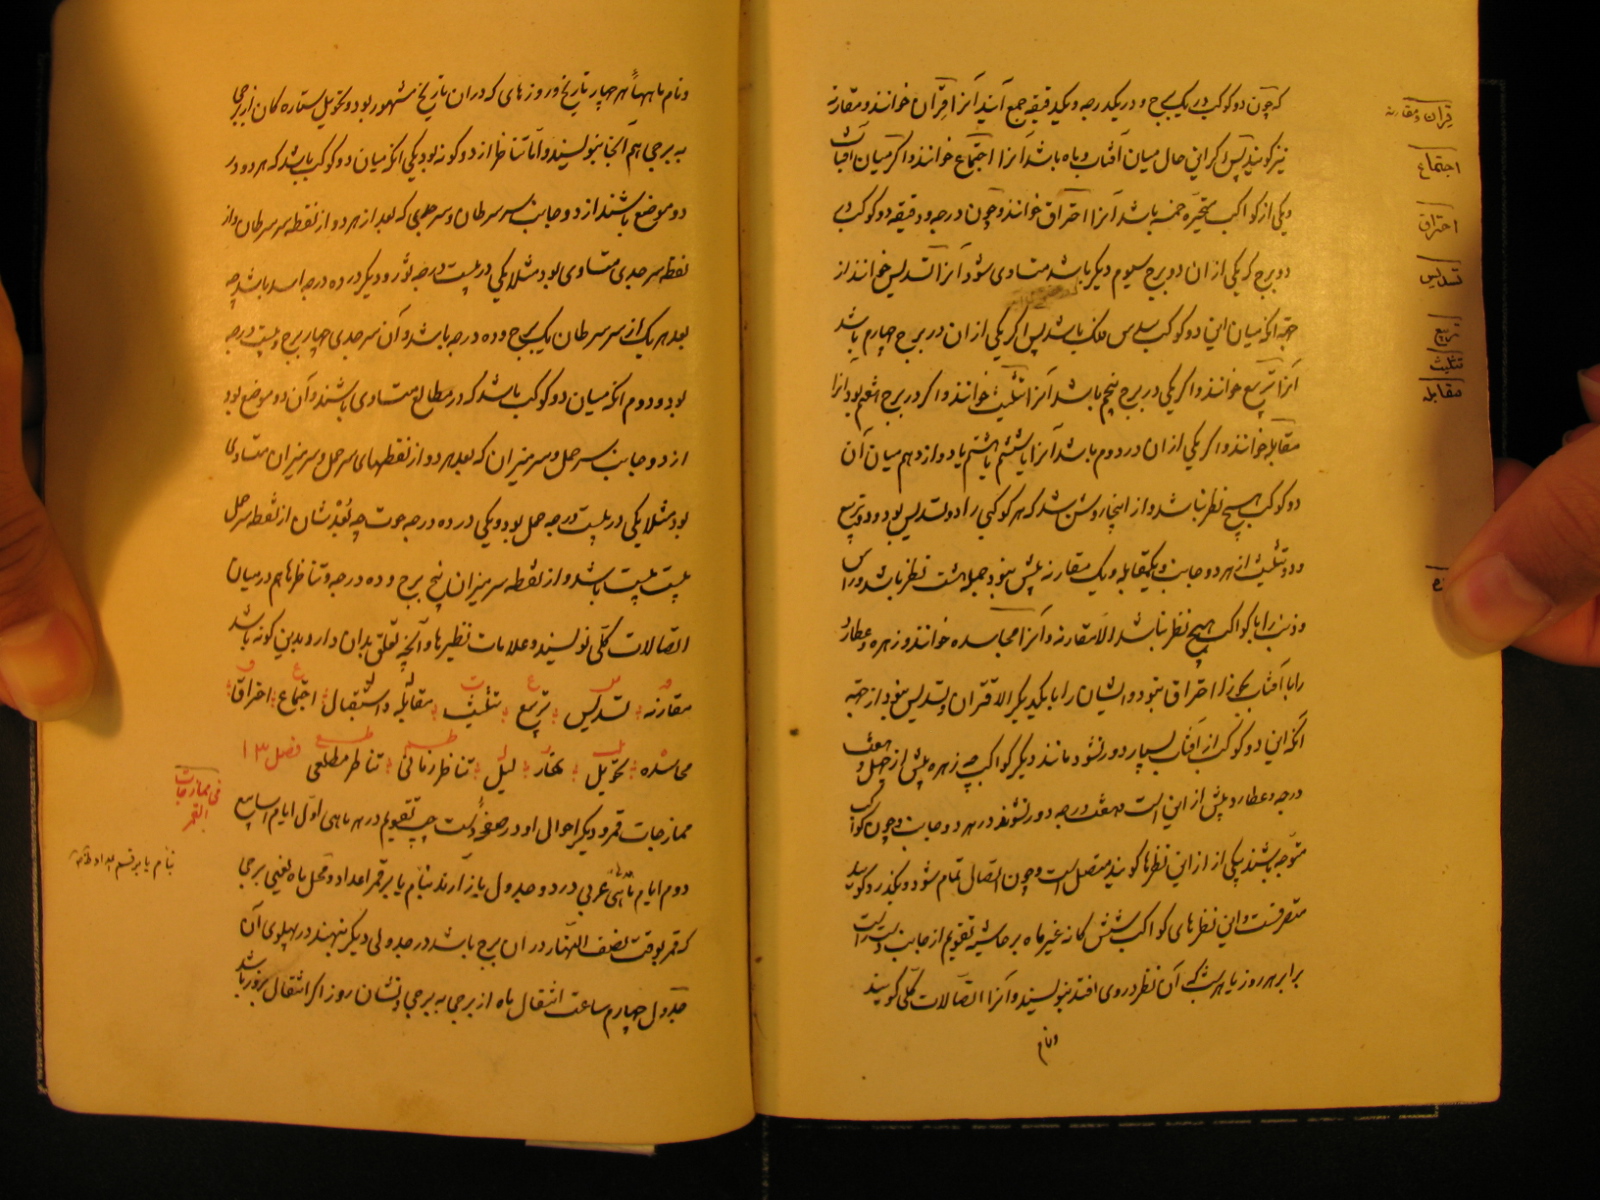 که چون دو کوکب در یک برج و در یکدرجه و یکدقیقه جمع آیند آنرا قران خوانند و مقارنه
قران و مقارنه
نیز گویند پس اگر این حال میان آفتاب و ماه باشد آنرا اجتماع خوانند و اگر میان آفتاب
اجتماع
و یکی از کواکب متحیره خمسه باشد آنرا احتراق خوانند و چون درجه و دقیقه دو کوکب در
احتراق
دو برج که یکی از ان دو برج سیوم دیگر باشد متساوی شود آنرا تسدیس خوانند از
تسدیس
جهة آنکه میان این دو کوکب سدس فلک باشد پس اگر یکی از ان در برج چهارم باشد
تربیع
آنرا تربیع خوانند و اگر یکی در برج پنجم باشد آنرا تثلیث خوانند و اگر در برج هفتم بود آنرا
تثلیث
مقابله
مقابله خوانند و اگر یکی از ان در دوم باشد آنرا یا ششم یا هشتم یا دوازدهم میان آن
دو کوکب هیچ نظر نباشد و از اینجا روشن شد که هر کوکبی را دو تسدیس بود و دو تربیع
و دو تثلیث از هر دو جانب و یکمقابله و یک مقارنه پیش نبود جمله هشت نظر باشد و راس
و ذنب را با کواکب هیچ نظر نباشد الا مقارنه و آنرا مجاسده خوانند و زهره و عطارد
را با آفتاب بجز احتراق نبود و ایشان را با یکدیگر الا قران و تسدیس نبود از جهة
آنکه این دو کوکب از آفتاب بسیار دور نشود مانند دیگر کواکب چه زهره پیش از چهل و هفت
درجه و عطارد پیش از این بیست و هفت درجه دور نشوند در هر دو جانب و چون کواکب
متوجه باشند بیکی از این نظرها گویند متصل است و چون اتصال تمام شود و بگذرد گویند
منصرفست و این نظرهای کواکب ششگانه غیر ماه بر حاشیه تقویم از جانب دست راست
برابر هر روز یا هر شب که آن نظر در وی افتد بنویسند و آنرا اتصالات کلی گویند
و نام
و نام ماههاء هر چهار تاریخ و روزهای که دران تاریخ مشهور بود و تحویل ستاره کان از برجی
به برجی هم آنجا بنویسند و اما تناظر از دو گونه بود یکی آنکه میان دو کوکب باشد که هر دو در
دو موضع باشند از دو جانب سر سرطان و سر جدی که بعد از هر دو از نقطه سر سرطان و از
نقطه سر جدی متساوی بود مثلا یکی در بیست درجه ثور و دیگر در ده درجه اسد باشد چه
بعد هر یک از سر سرطان یک برج و ده درجه باشد و آن سر جدی چهار برج و بیست درجه
بود و دوم آنکه میان دو کوکب باشد که در مطالع متساوی باشند و آن دو موضع بود
از دو جانب سر حمل و سر میزان که بعد هر دو از نقطهای سر حمل و سر میزان متساوی
بود مثلا یکی در بیست درجه حمل بود و یکی در ده درجه حوت چه بعد شان از نقطه سر حمل
بیست بیست باشد و از نقطه سر میزان پنج برج و ده درجه و تناظرها هم در میان
اتصالات کلی نویسند و علامات نظیرها و آنچه تعلق بدان دارد بدین گونه باشد
مقارنه تسدیس تربیع تثلیث مقابله و استقبال اجتماع احتراق
مجاسده تحویل نهار لیل تناظر زمانی تناظر مطلعی فصل ۱۳
فی ممازجات القمر
ممازجات قمر و دیگر احوال او در صفحه دست چپ تقویم در هر ماهی اول ایام اسابیع
دوم ایام ماهی عربی در دو جدول باز آرند بنام یا برقم اعداد و محل ماه یعنی برجی
که قمر بوقت نصف النهار در ان برج باشد در جدولی دیگر بنهند در پهلوی آن
جدول چهارم ساعت انتقال ماه از برجی به برجی و نشان روز اگر انتقال بروز باشد